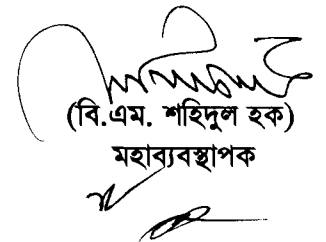 (বি.এম. শহিদুল হক)
মহাব্যবস্থাপক